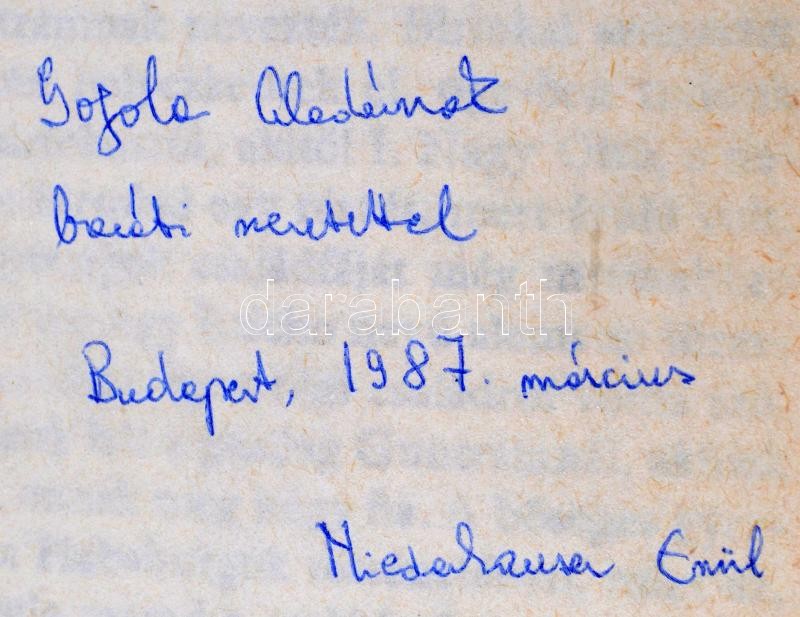 Gogola Aladárnak
baráti szeretettel
darabanth
Budapest, 1987. március
Niederhauser Emil